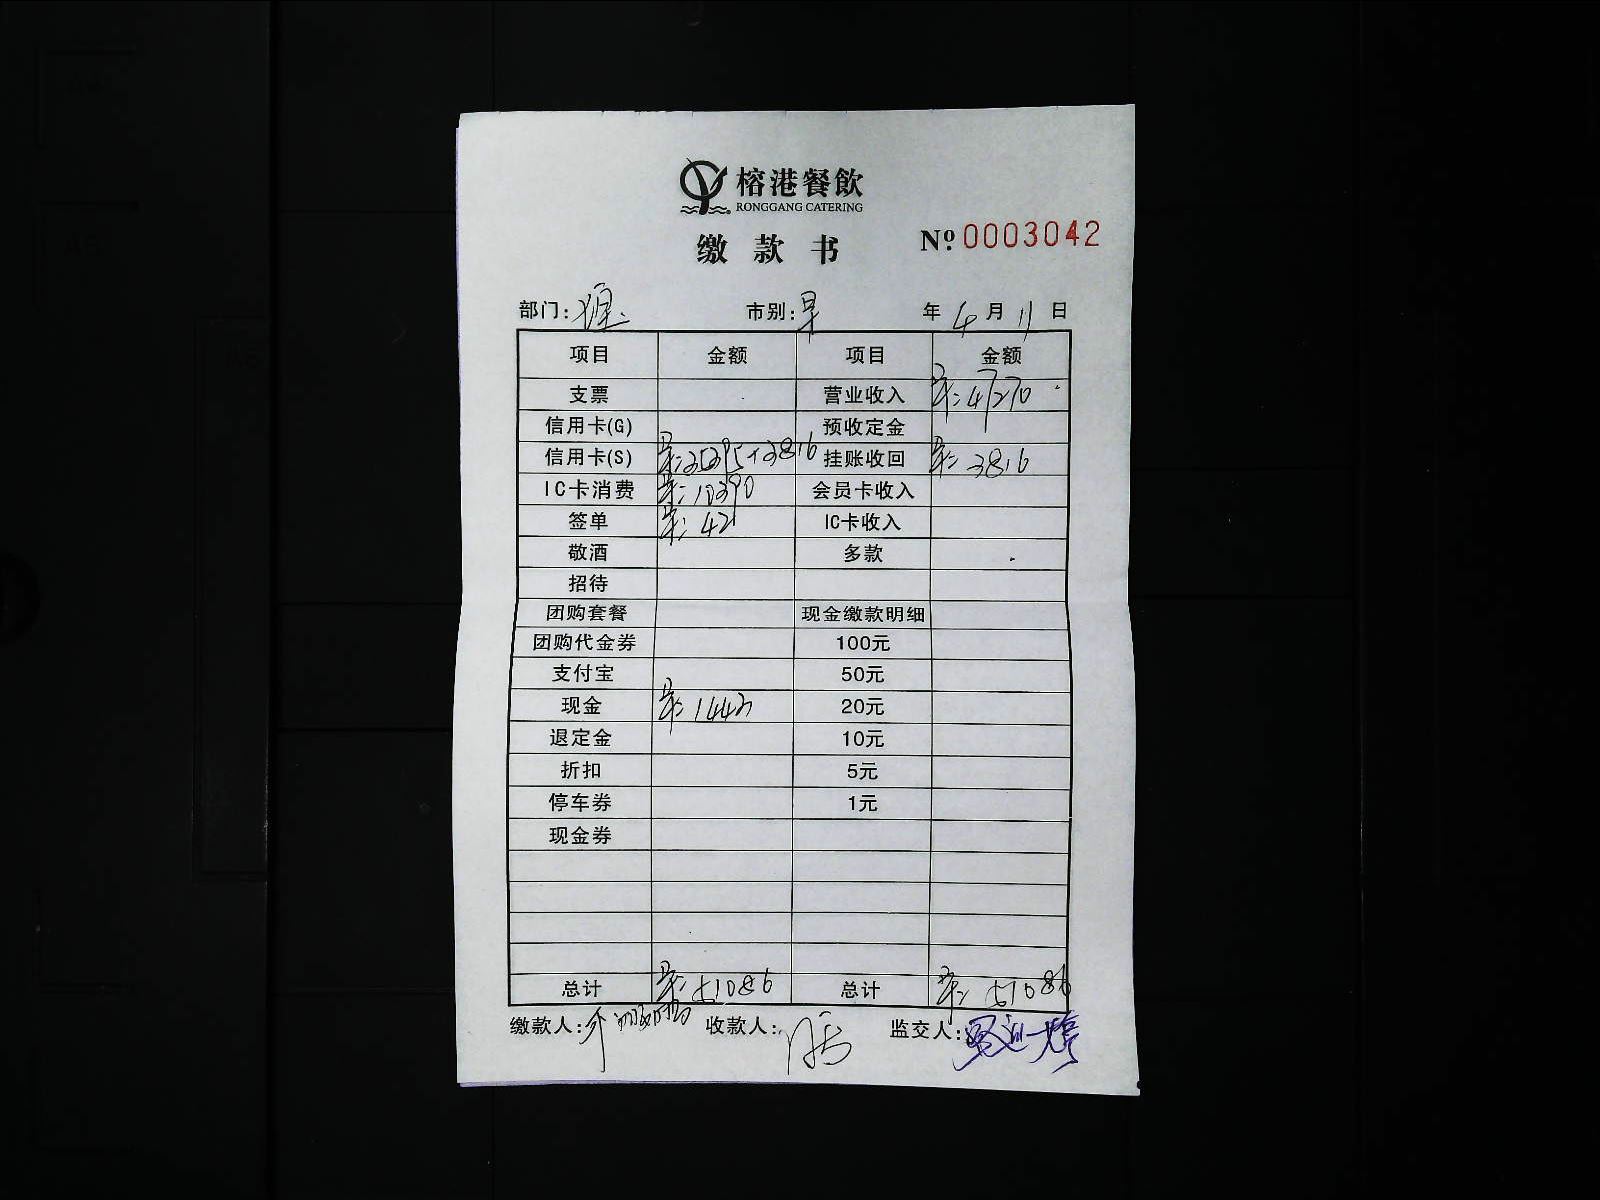 榕港餐飲
RONGGANG CATERING
缴款书 №0003042
部门: 市别:早 年 4 月 11 日
项目 金额 项目 金额
支票 营业收入 早:47270
信用卡(G) 预收定金
信用卡(S) 早:35395+3816 挂账收回 早:3816
IC卡消费 早:10390 会员卡收入
签单 早:42 IC卡收入
敬酒 多款
招待
团购套餐 现金缴款明细
团购代金券 100元
支付宝 50元
现金 早:1443 20元
退定金 10元
折扣 5元
停车券 1元
现金券
总计 早:51086 总计 早:51086
缴款人: 收款人: 监交人: